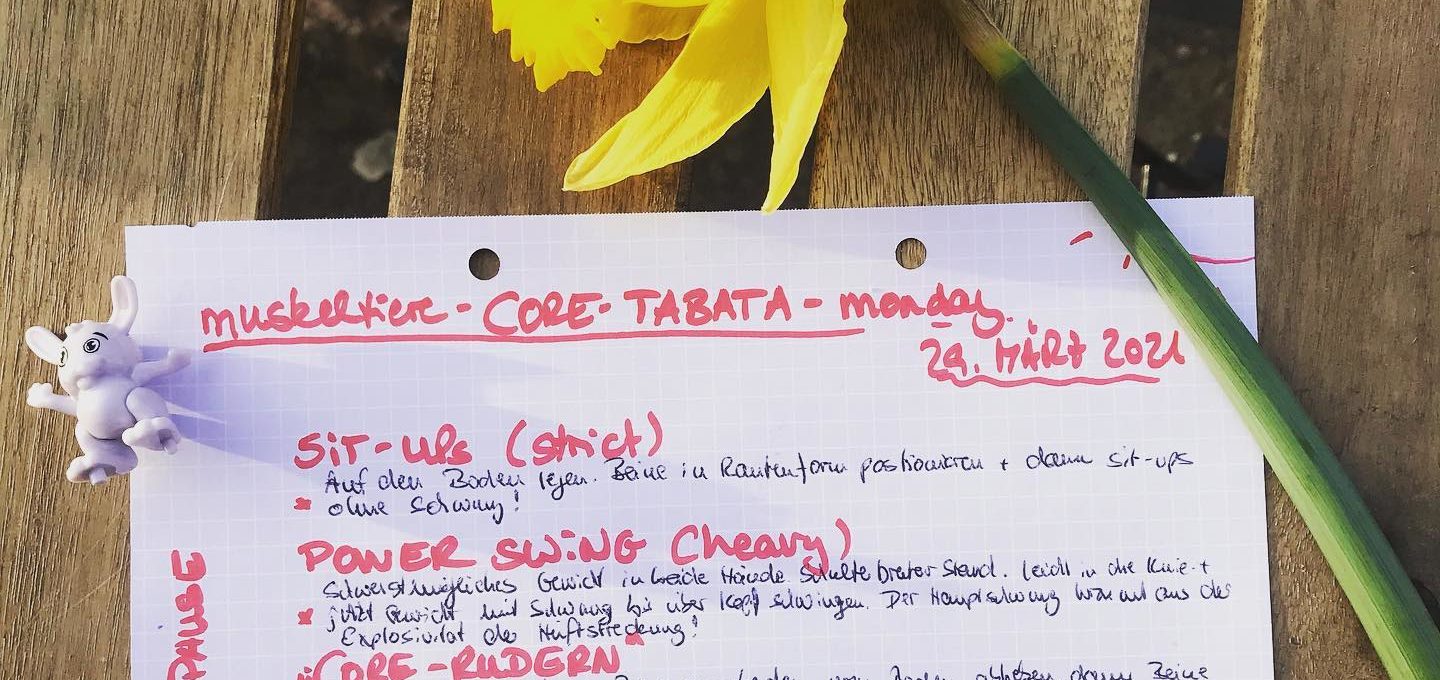 muskeltiere - CORE - TABATA - monday.
29. MÄRZ 2021
SiT-UPs (strict)
Auf den Boden legen. Beine in Rautenform positionieren + dann sit-ups
ohne Schwung!
POWER SWiNG (heavy)
Schwerstmögliches Gewicht in beide Hände. Schulterbreiter Stand. Leicht in die Knie +
jetzt Gewicht mit Schwung bis über Kopf schwingen. Der Hauptschwung kommt aus der
Explosivität der Hüftstreckung!
PAUSE
CORE-RUDERN
Boden dann Beine